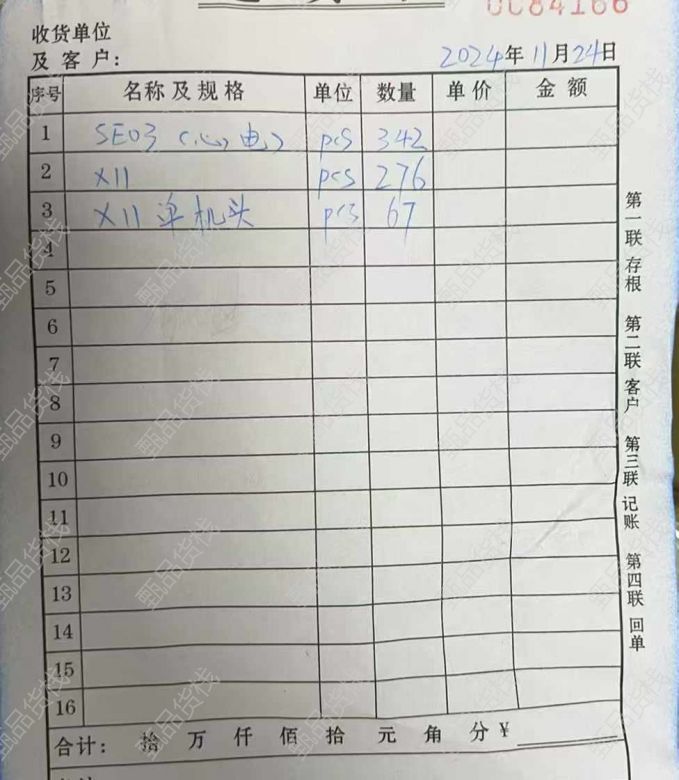 0084166
收货单位
及客户:
2024年11月24日
序号 名称及规格 单位 数量 单价 金额
1 SE03(心电) pcs 342
2 X11 pcs 276
3 X11单机头 pcs 67
4
5
6
7
8
9
10
11
12
13
14
15
16
合计: 拾 万 仟 佰 拾 元 角 分 ¥
第一联 存根 第二联 客户 第三联 记账 第四联 回单
甄品货栈